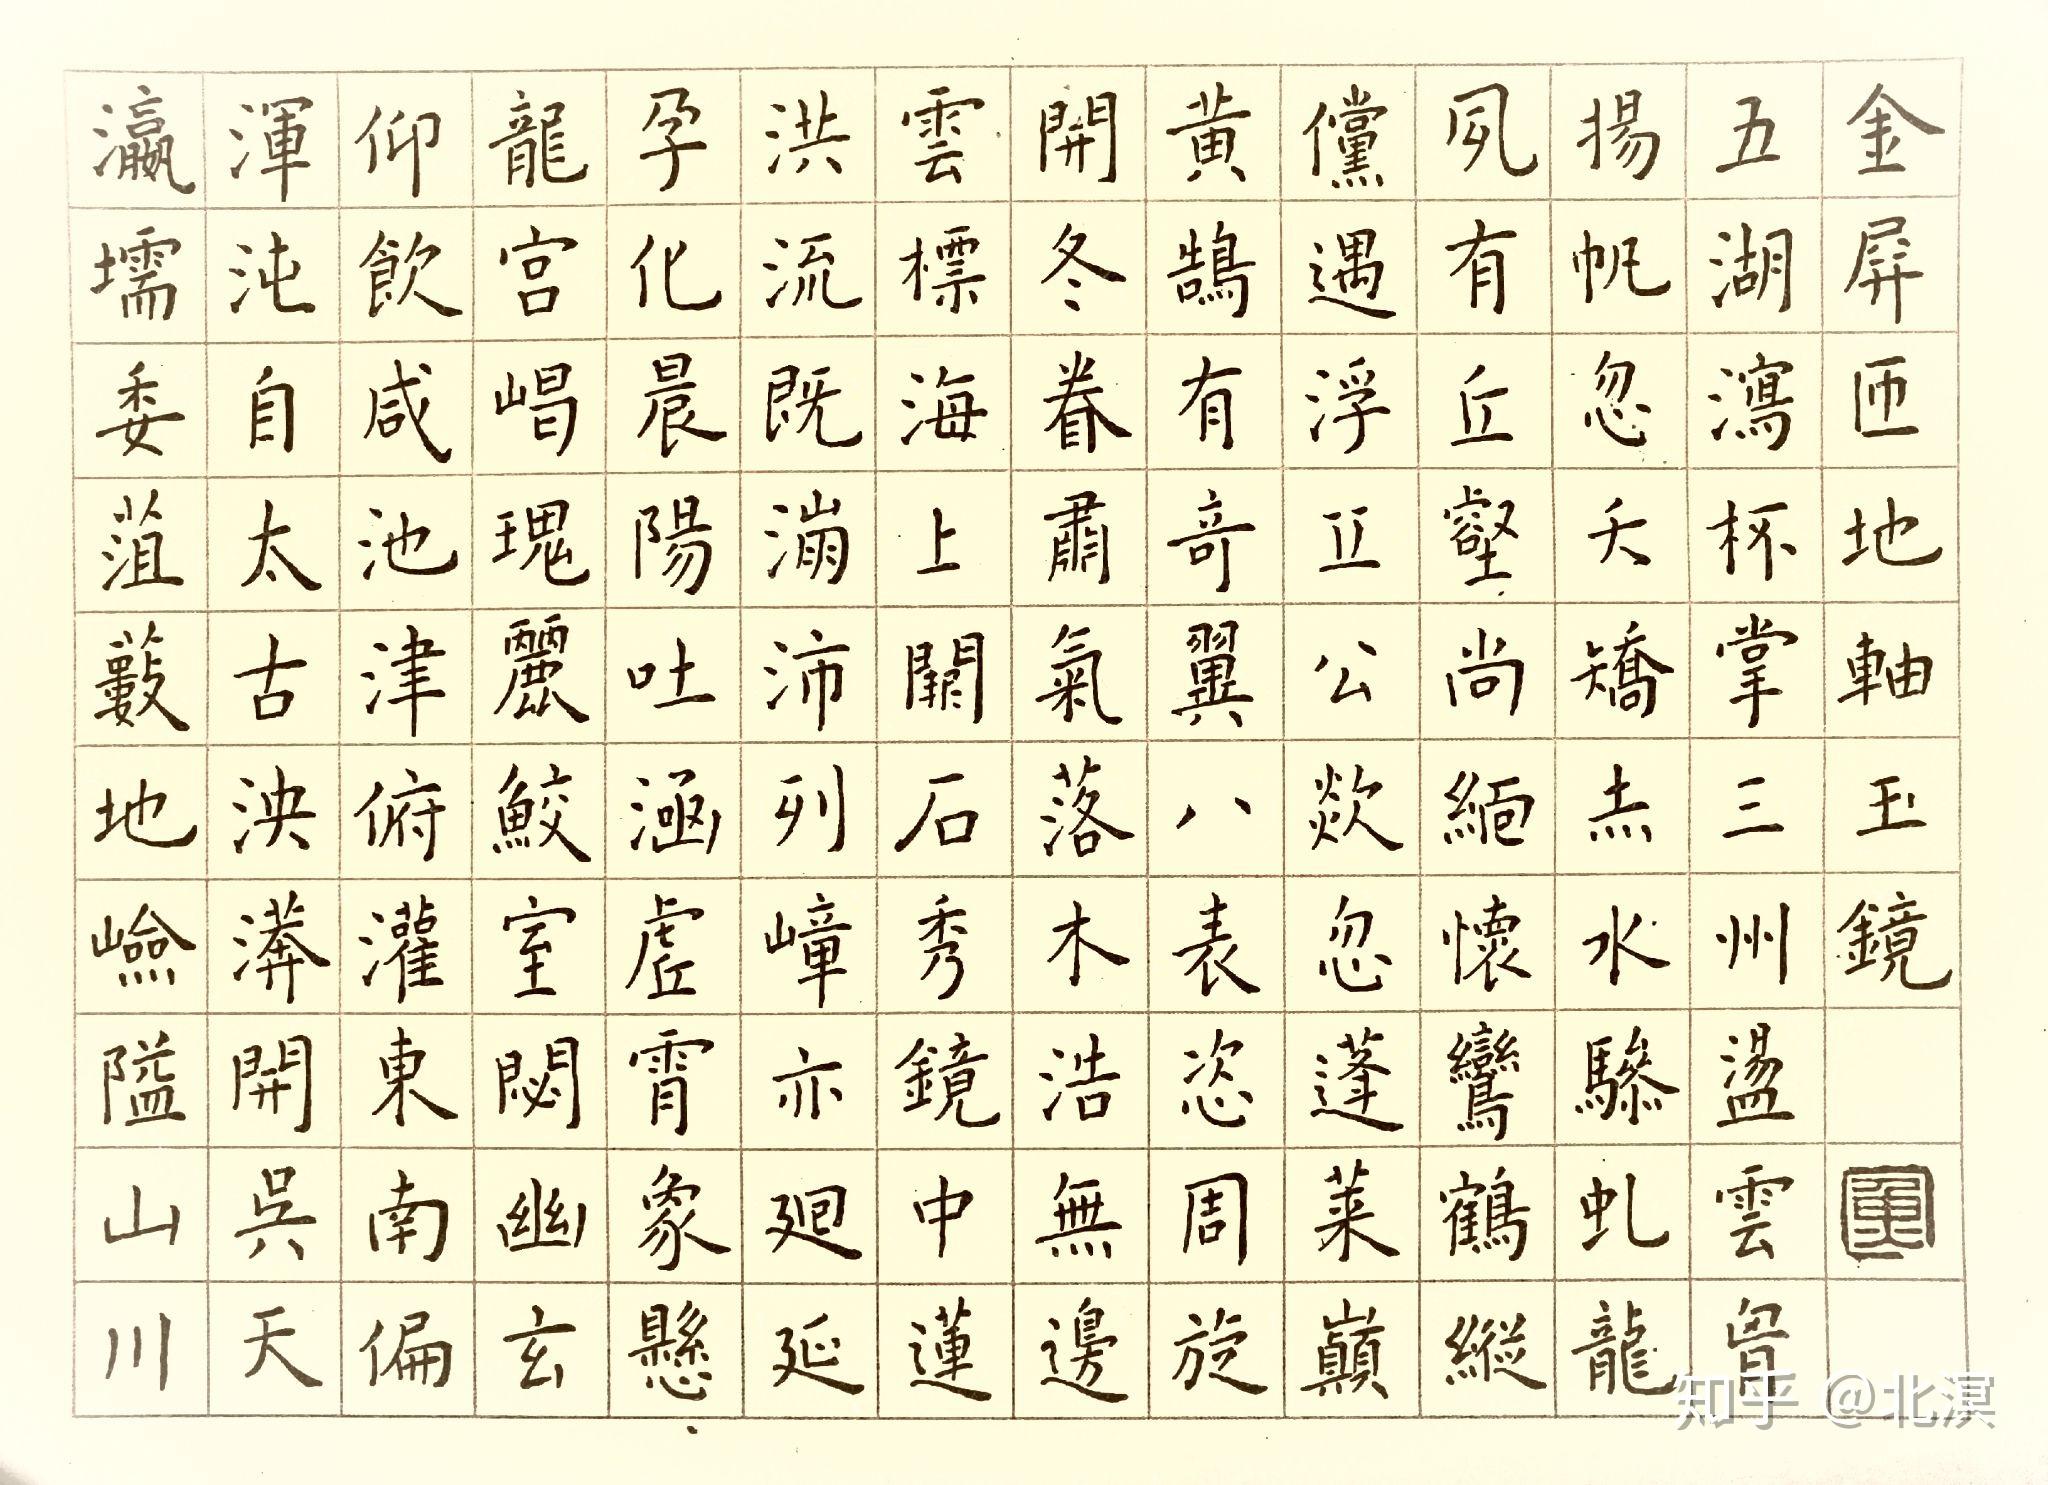 瀛壖委菹藪地嶮隘山川
渾沌自太古泱漭開吳天
仰飲咸池津俯灌東南偏
龍宮唱瑰麗鮫室閟幽玄
孕化晨陽吐涵虛霄象懸
洪流既漰沛列嶂亦迴延
雲標海上闕石秀鏡中蓮
開冬眷肅氣落木浩無邊
黃鵠有奇翼八表恣周旋
儻遇浮丘公欻忽蓬萊巔
夙有丘壑尚緬懷鸞鶴縱
揚帆忽夭矯赤水驂虬龍
五湖瀉杯掌三州盪雲胷
金屏匝地軸玉鏡
知乎 @北溟